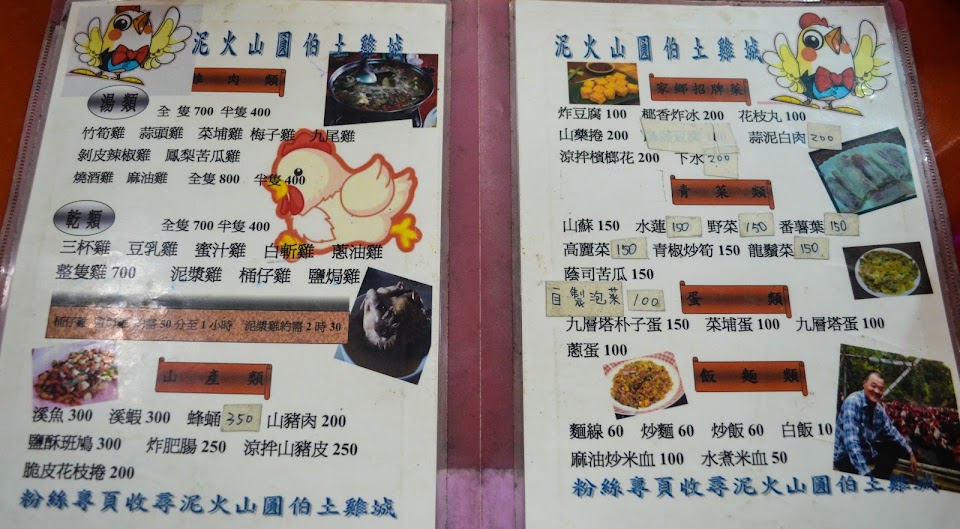 泥火山圓伯土雞城
雞肉類
湯類 全隻700 半隻400
竹筍雞 蒜頭雞 菜埔雞 梅子雞 九尾雞
剝皮辣椒雞 鳳梨苦瓜雞
燒酒雞 麻油雞 全隻800 半隻400
乾類 全隻700 半隻400
三杯雞 豆乳雞 蜜汁雞 白斬雞 蔥油雞
整隻雞700 泥漿雞 桶仔雞 鹽焗雞
桶仔雞 需50分至1小時 泥漿雞約需2時30
山產類
溪魚300 溪蝦300 蜂蛹350 山豬肉200
鹽酥班鳩300 炸肥腸250 涼拌山豬皮250
脆皮花枝捲200
粉絲專頁收尋泥火山圓伯土雞城
泥火山圓伯土雞城
家鄉招牌菜
炸豆腐100 椰香炸冰200 花枝丸100
山藥捲200 蒜泥白肉200
涼拌檳榔花200 下水200
青菜類
山蘇150 水蓮150 野菜150 番薯葉150
高麗菜150 青椒炒筍150 龍鬚菜150
蔭司苦瓜150
自製泡菜100
蛋類
九層塔朴子蛋150 菜埔蛋100 九層塔蛋100
蔥蛋100
飯麵類
麵線60 炒麵60 炒飯60 白飯10
麻油炒米血100 水煮米血50
粉絲專頁收尋泥火山圓伯土雞城